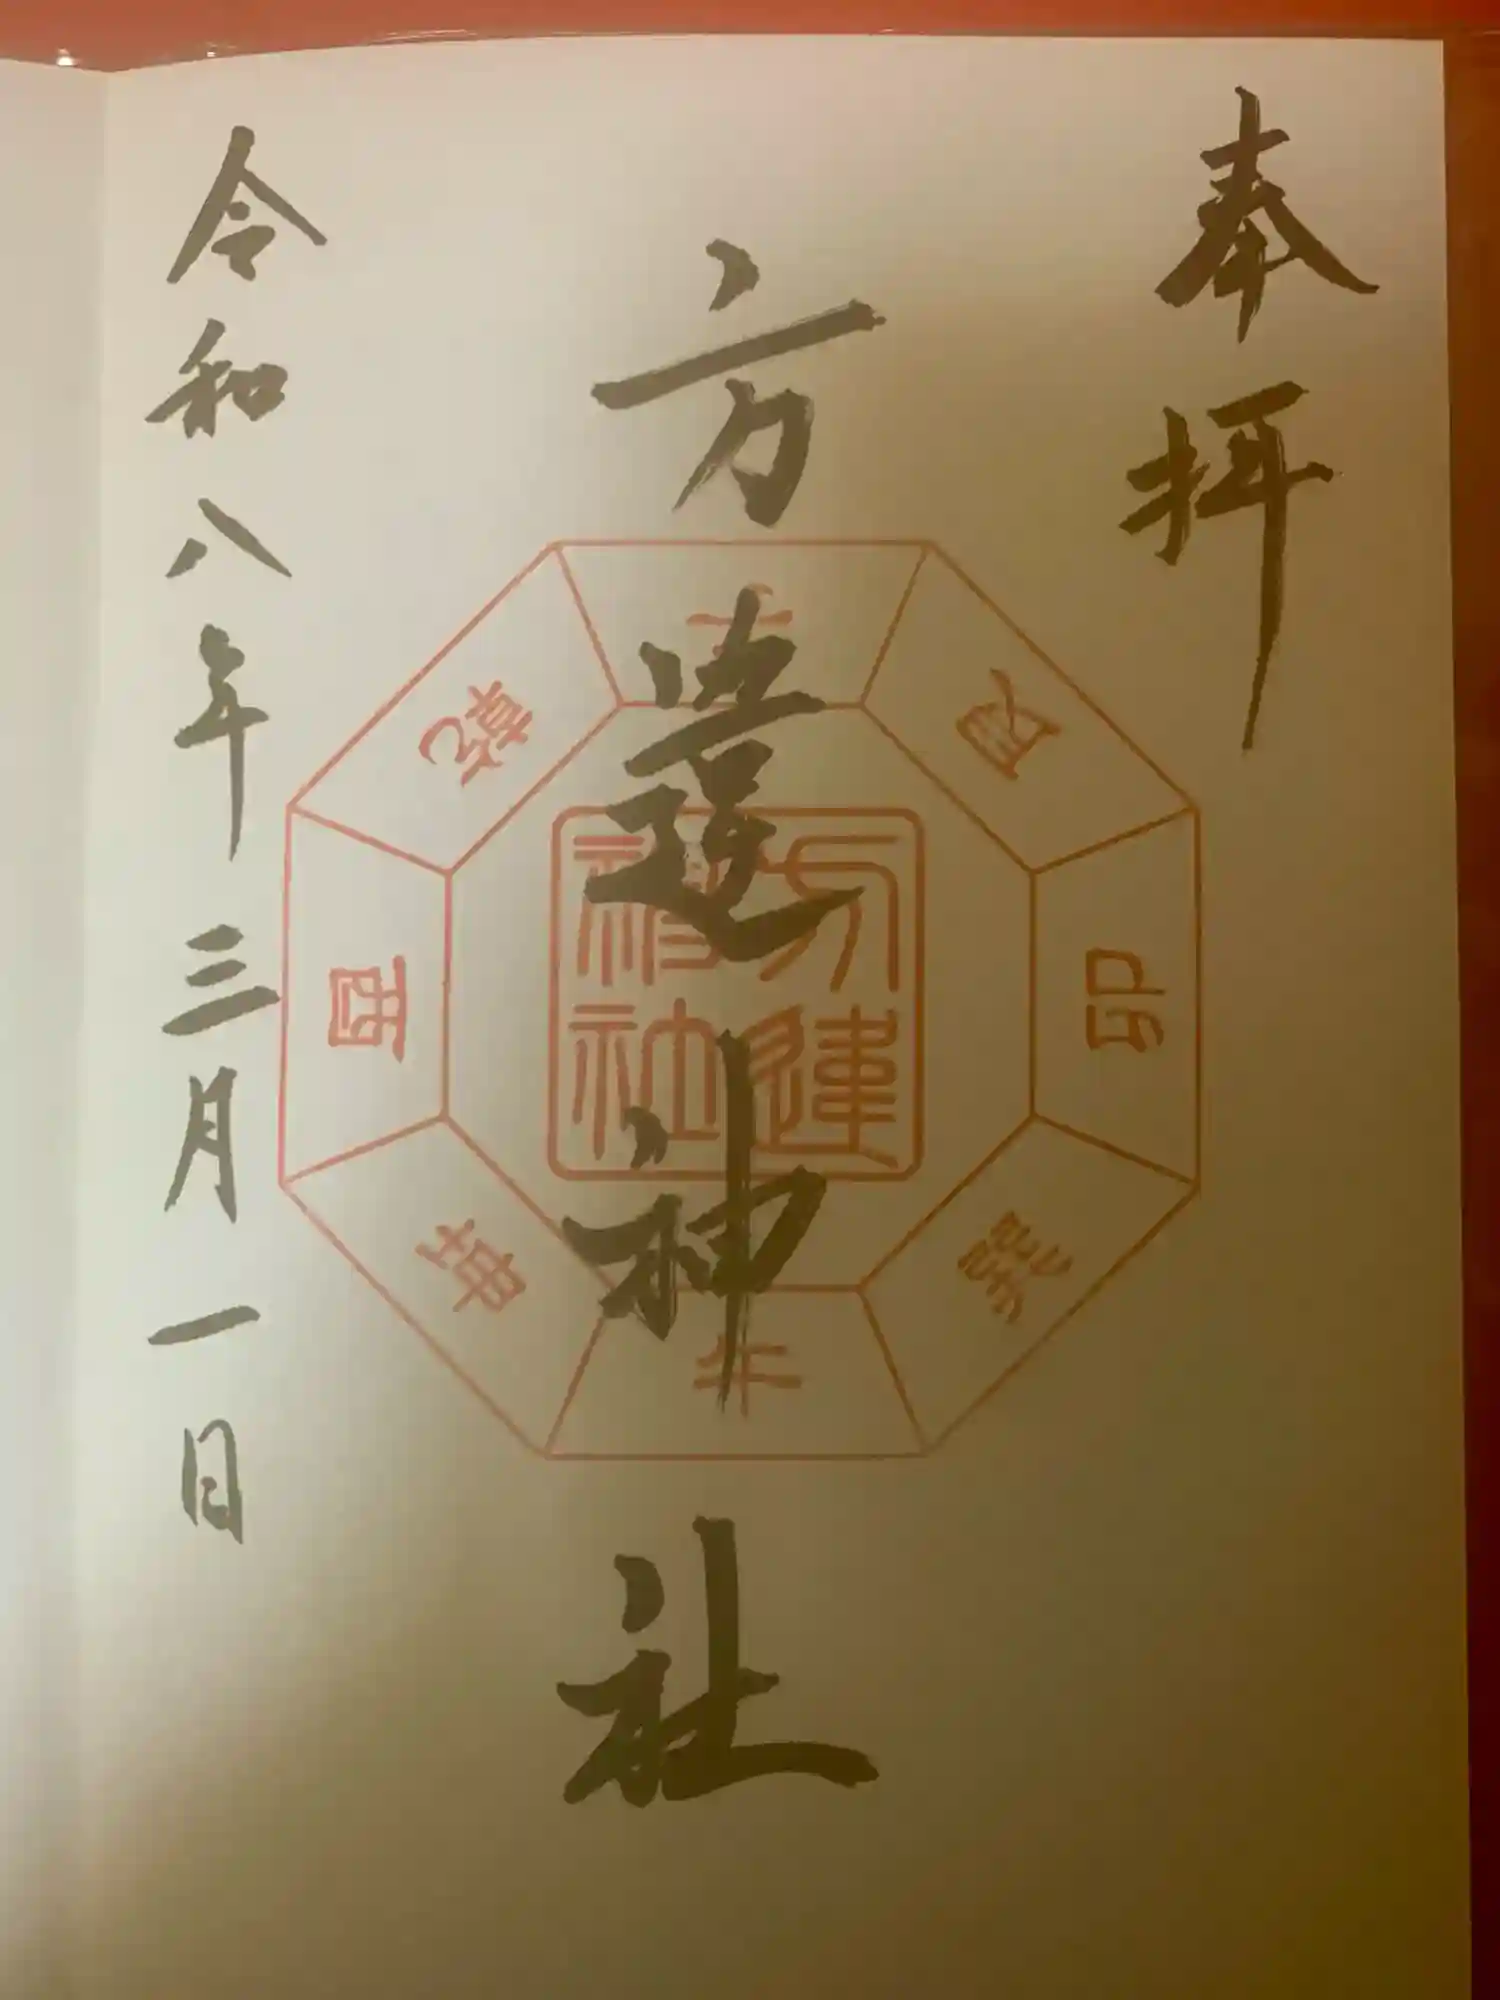 奉拝
方違神社
令和八年三月一日
方違
神社
子
艮
卯
巽
午
坤
酉
乾